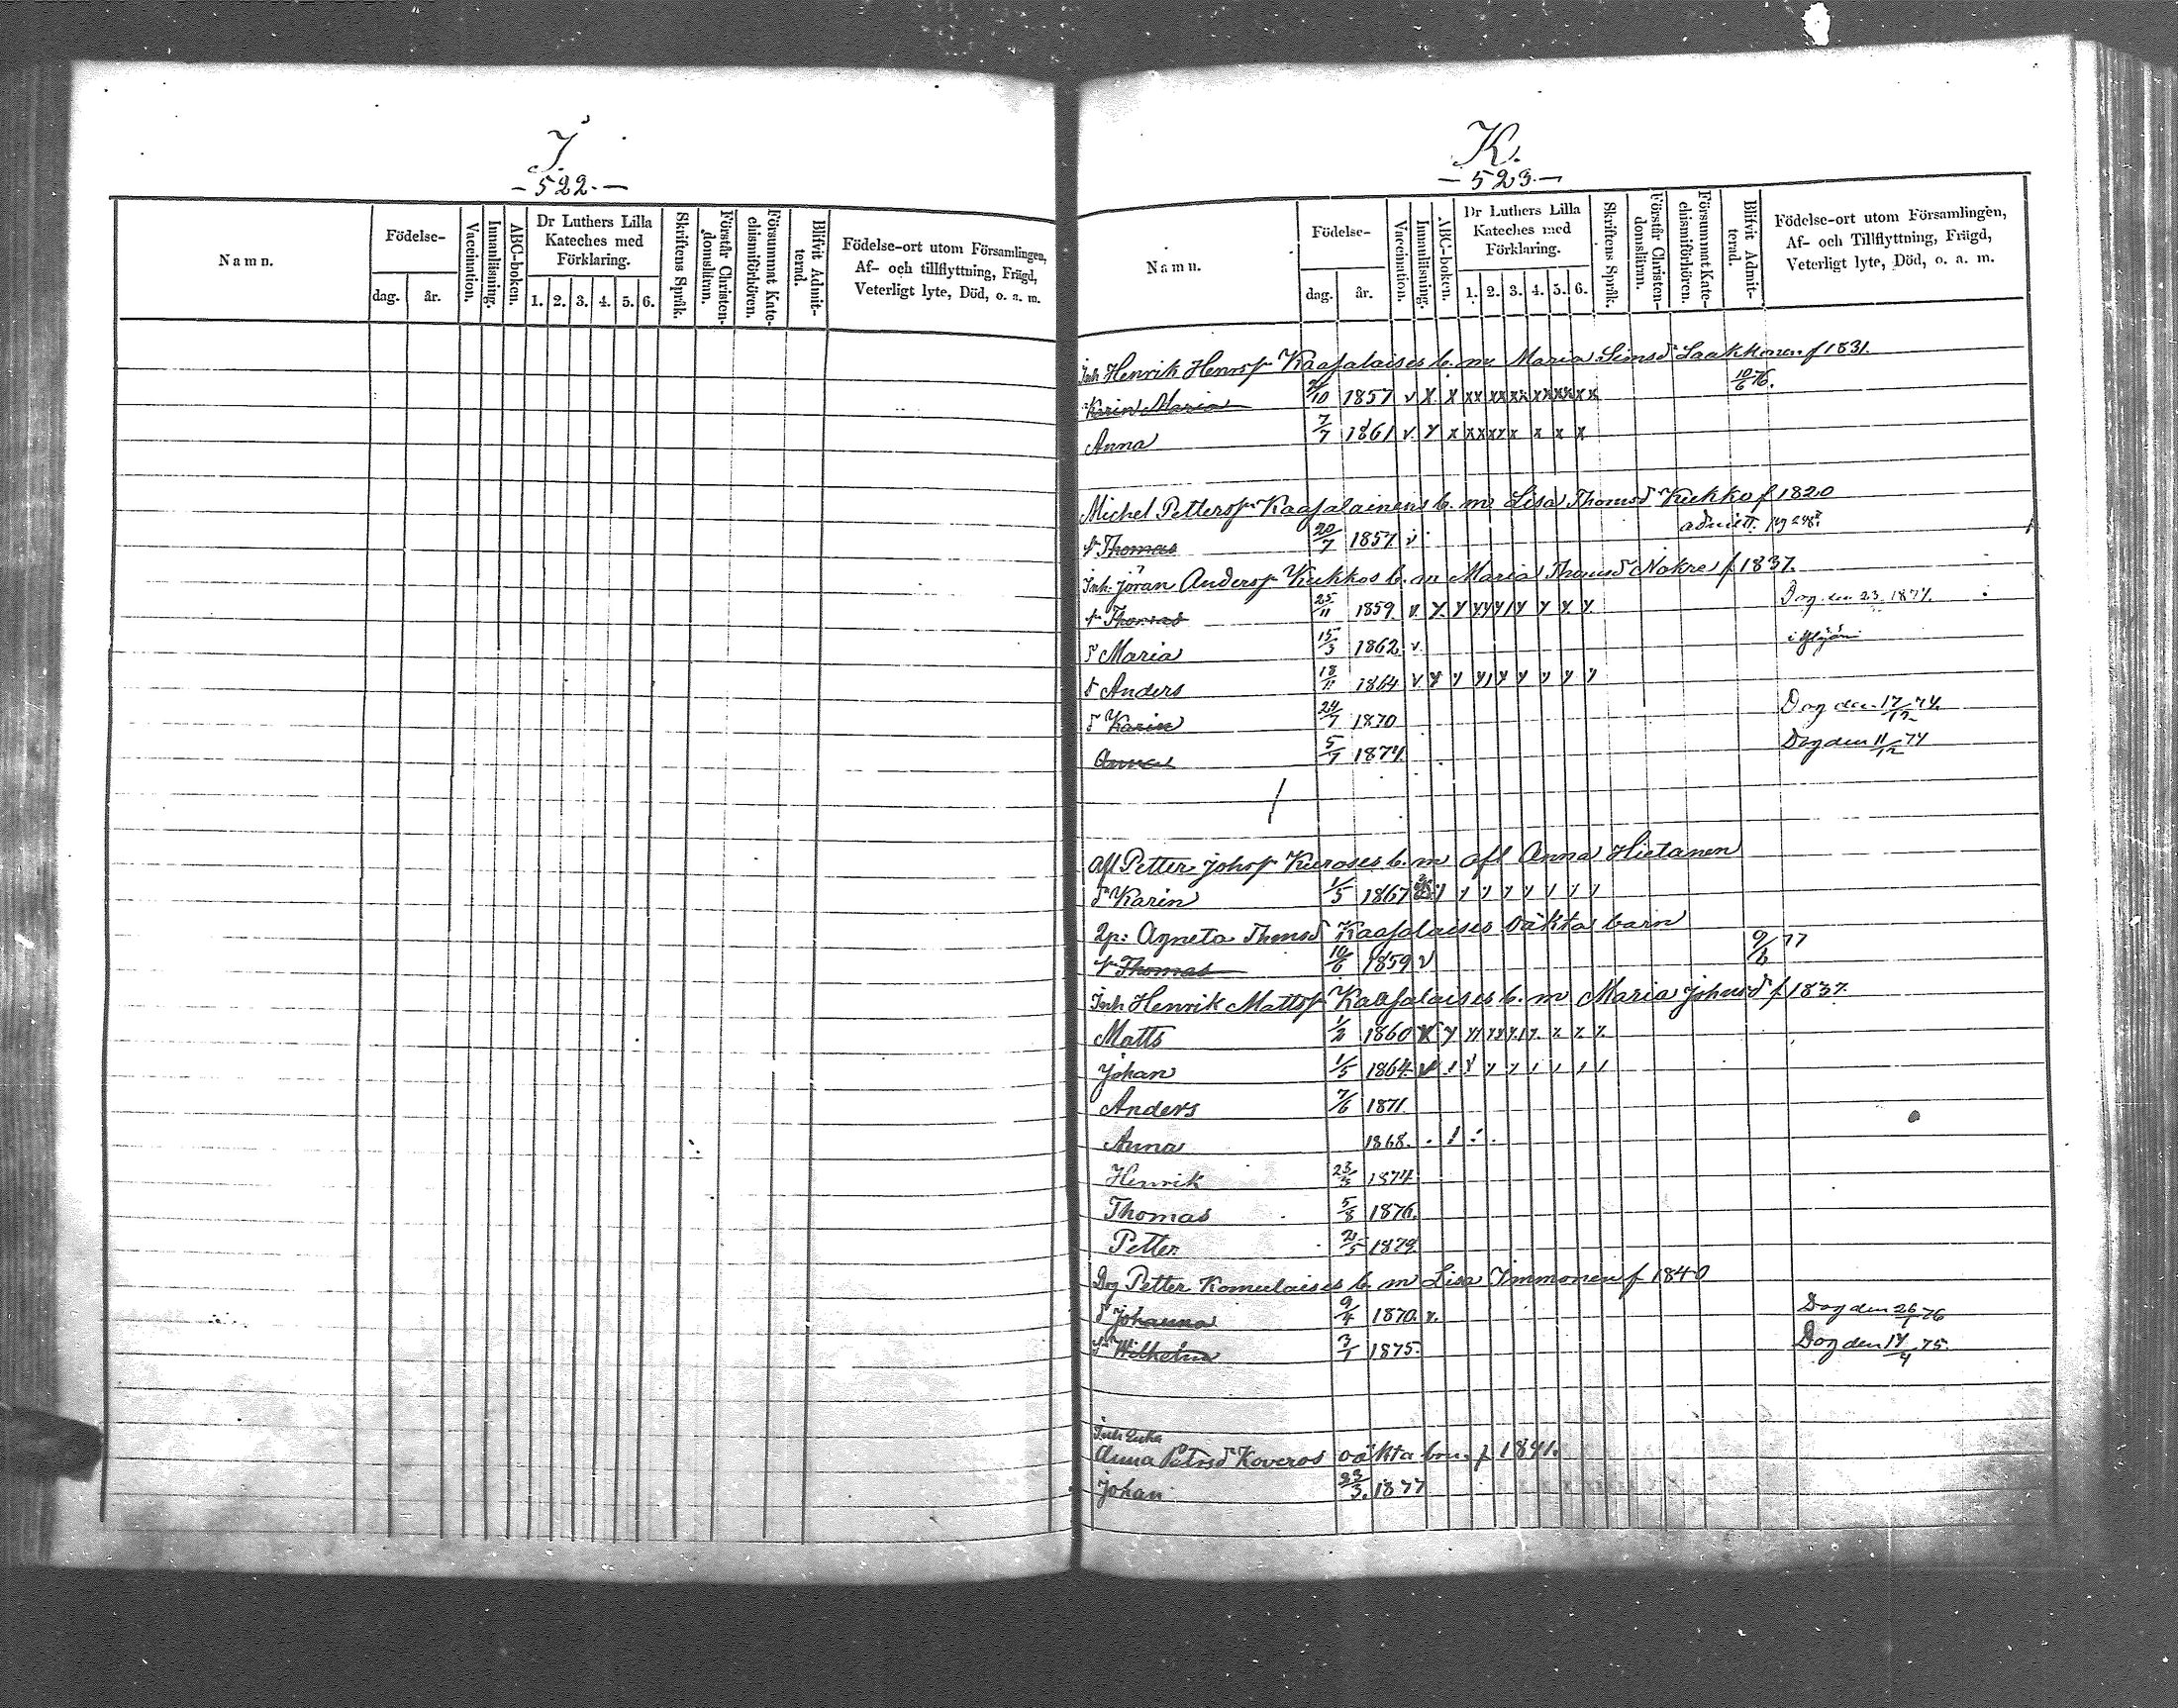 J.
- 522. -
Namn.
Födelse-
dag.
år.
Vaccination.
Innanläsning.
ABC-boken.
Dr Luthers Lilla Kateches med Förklaring.
1. 2. 3. 4. 5. 6.
Skriftens Språk.
Förstår Christen-domsläran.
Försummat Kate-chismiförhören.
Blifvit Admit-terad.
Födelse-ort utom Församlingen,
Af- och tillflyttning, Frägd,
Veterligt lyte, Död, o. a. m.
K.
- 523 -
Namn.
Födelse-
dag.
år.
Vaccination.
Innanläsning.
ABC-boken.
Dr Luthers Lilla Kateches med Förklaring.
1. 2. 3. 4. 5. 6.
Skriftens Språk.
Förstår Christen-domsläran.
Försummat Kate-chismiförhören.
Blifvit Admit-terad.
Födelse-ort utom Församlingen,
Af- och Tillflyttning, Frägd,
Veterligt lyte, Död, o. a. m.
Inh Henrik Kaasalaises b. m. Maria Simsd Laakkonen f 1831.
Karin Maria 1857 v x x xx xx xx xx xx x x 10/6 76.
Anna 7/7 1861 v. y x xx xx x x x x
Michel Petterss Kaasalainens b. m Lisa Thomsd Kukko f 1820
s Thomas 20/7 1857 v admitt. pag
Inh: Jöran Anderss Kukkos b. m Maria Thomsd Nokre f 1837.
s Thomas 25/11 1859. v. y. y yy y y y y y Dog den 23 1874.
d Maria 15/3 1862 v.
s Anders 18/11 1864 v y y y y y y y y
d Karin 24/7 1870 Dog den 17/12 74.
Anna 5/7 1874. Dog den 11/12 74
Afl Petter Johss Kuroses b. m afl Anna Hietanen
d Karin 1/5 1867
2p: Agneta Thomsd Kaasalaises oäkta barn
s Thomas 10/6 1859 v 9/6 77
Inh Henrik Mattss Kaasalaises b. m Maria Johnsd f 1837.
Matts 1/2 1860
Johan 1/5 1864
Anders 7/6 1871
Anna 1868.
Henrik 23/3 1874
Thomas 5/8 1876.
Petter 1879.
Dog Petter Komulaises b. m Lisa Immonen f 1840
d Johanna 9/4 1870. v. Dog den 26/1 76
s Wilhelm 3/1 1875. Dog den 14/4 75.
Inh Enka
Anna Petrsd Koveros oäkta brn. f 1841.
Johan 23/3. 1877